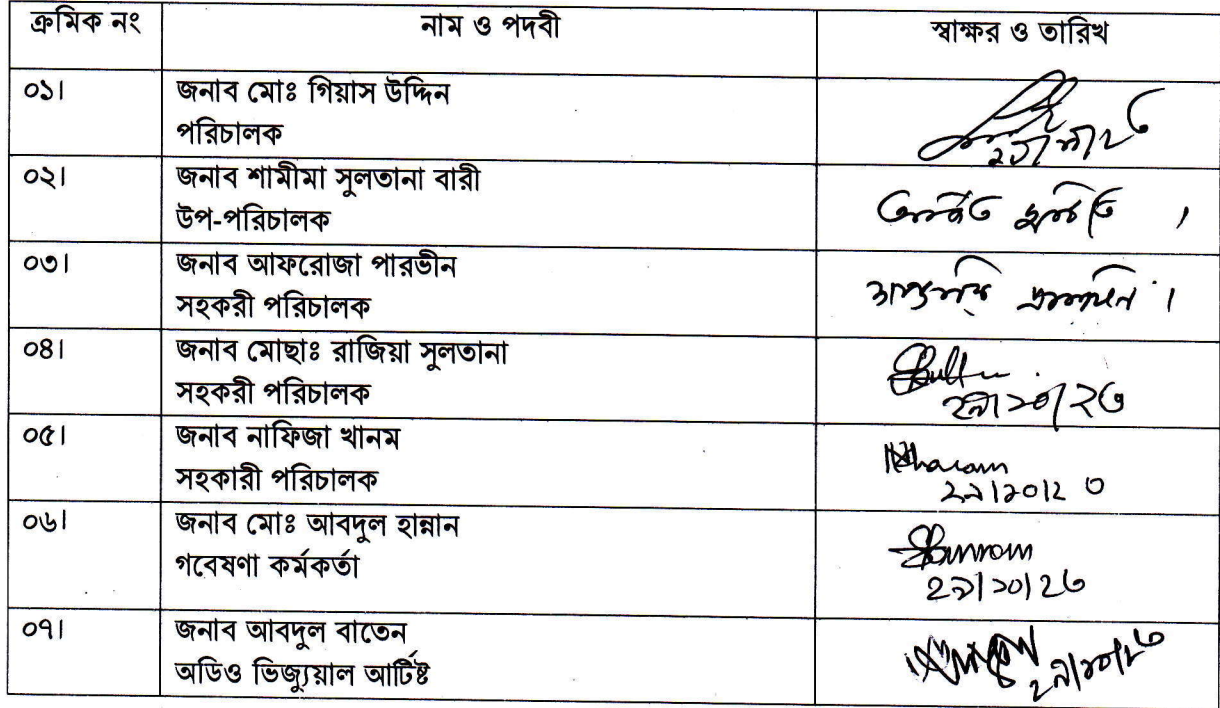 ক্রমিক নং	নাম ও পদবী	স্বাক্ষর ও তারিখ
০১।	জনাব মোঃ গিয়াস উদ্দিন
পরিচালক
০২।	জনাব শামীমা সুলতানা বারী
উপ-পরিচালক
০৩।	জনাব আফরোজা পারভীন
সহকরী পরিচালক
০৪।	জনাব মোছাঃ রাজিয়া সুলতানা
সহকরী পরিচালক
০৫।	জনাব নাফিজা খানম
সহকারী পরিচালক
০৬।	জনাব মোঃ আবদুল হান্নান
গবেষণা কর্মকর্তা
০৭।	জনাব আবদুল বাতেন
অডিও ভিজ্যুয়াল আর্টিষ্ট